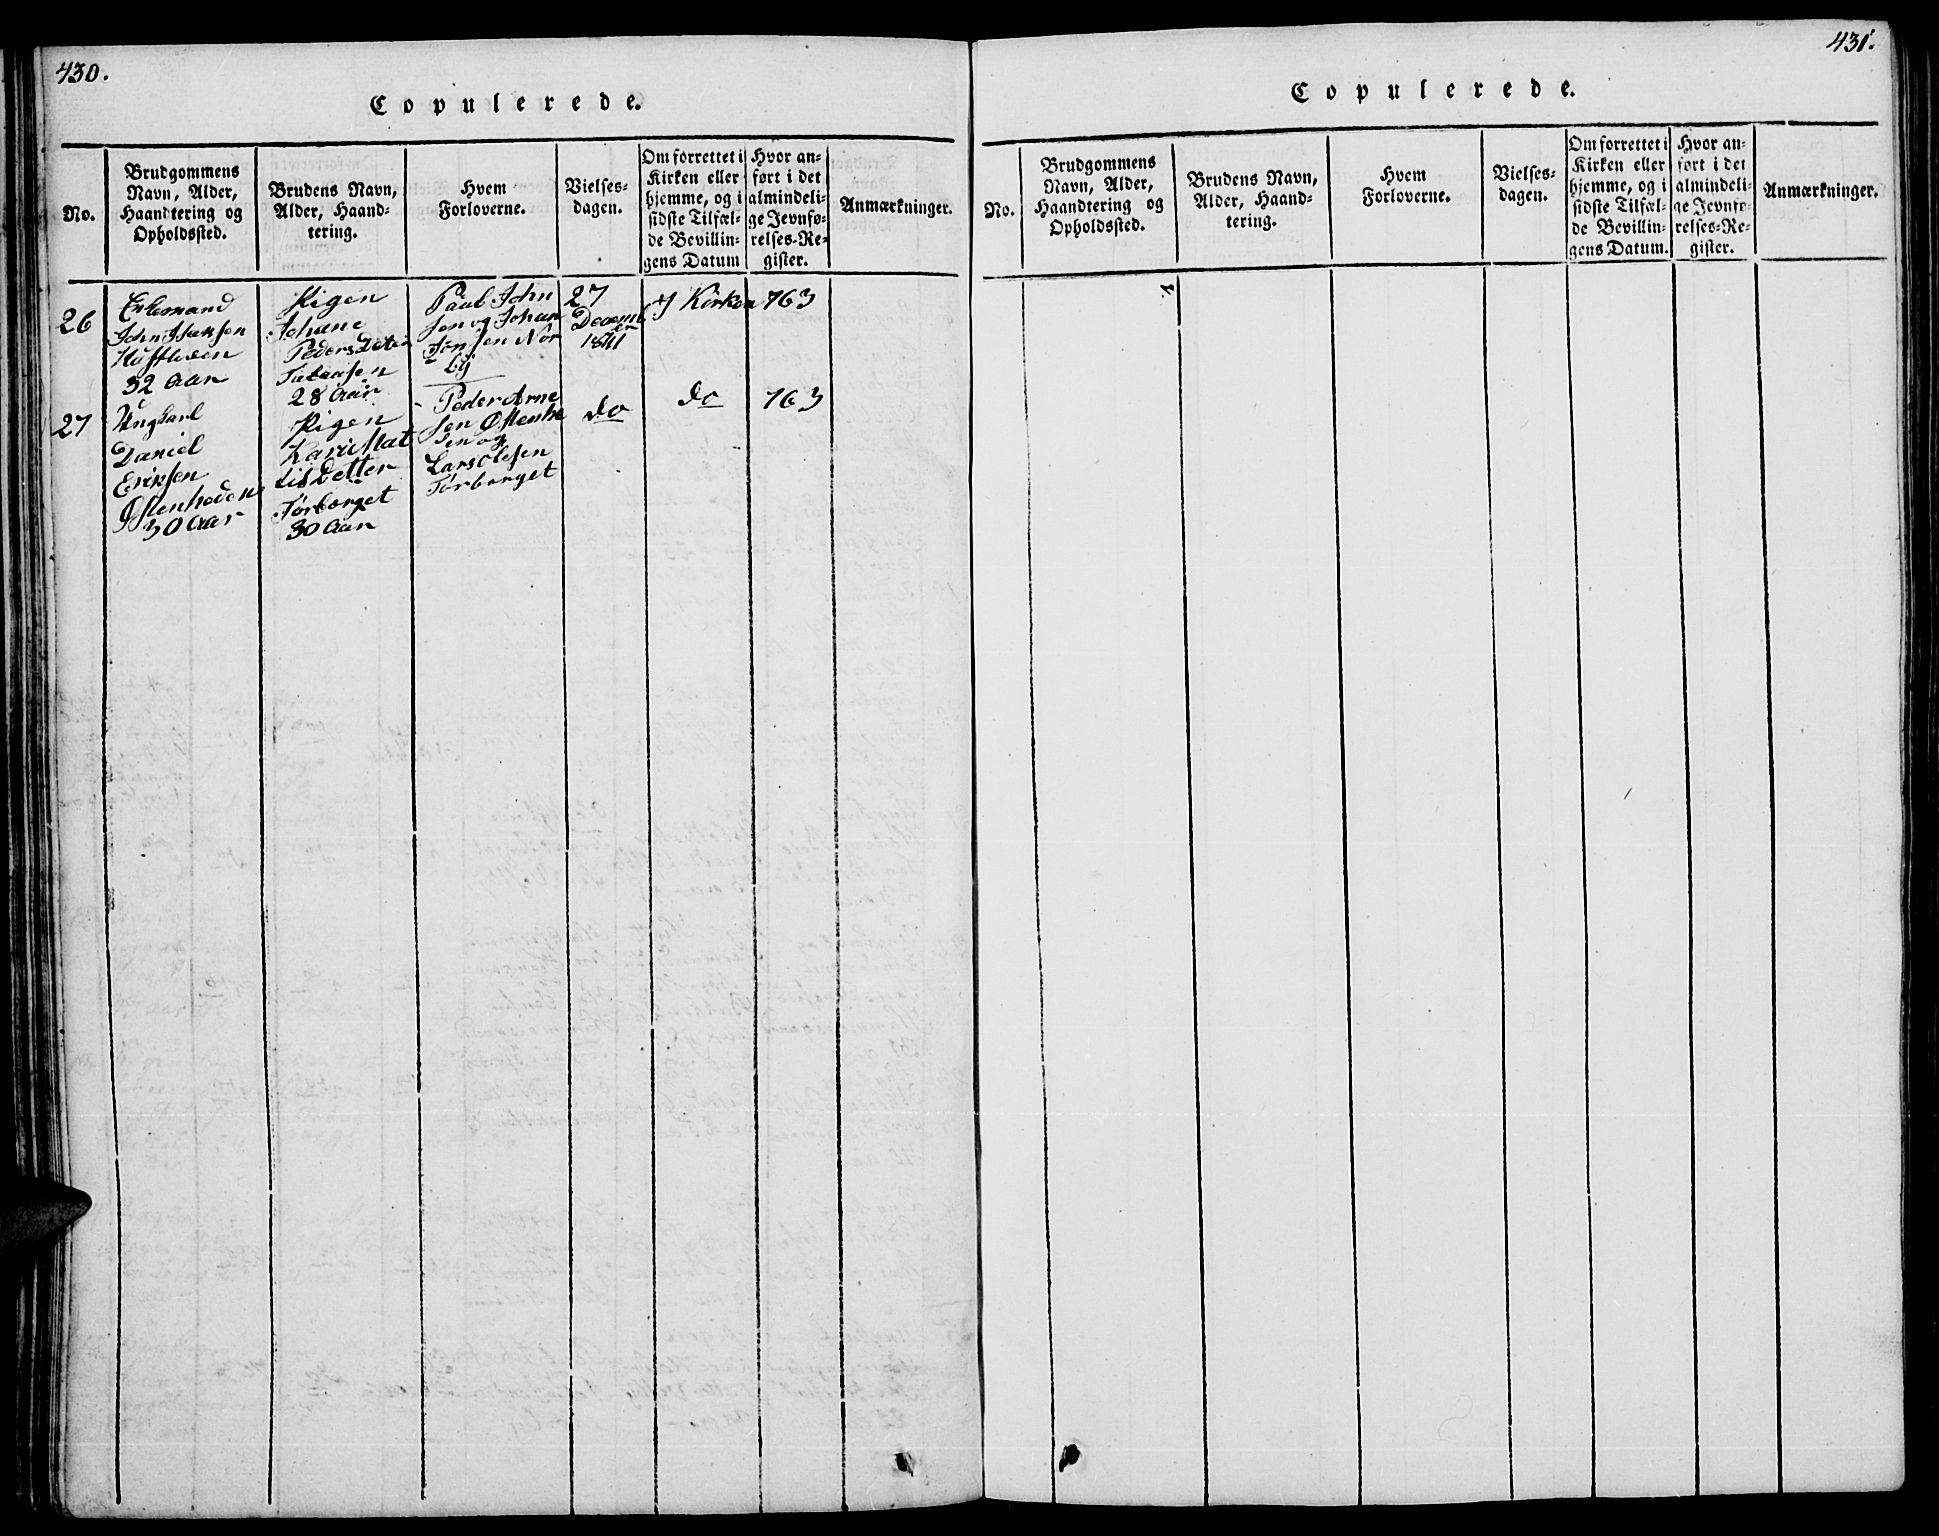 430.
Copulerede.
No.
Brudgommens
Navn, Alder,
Haandtering og
Opholdssted.
Brudens Navn,
Alder, Haand-
tering.
Hvem
Forloverne.
Vielses-
dagen.
Om forrettet i
Kirken eller
hjemme, og i
sidste Tilfæl-
de Bevillin-
gens Datum
Hvor an-
ført i det
almindeli-
ge Jevnfø-
relses-Re-
gister.
Anmærkninger.
26
Enkemand
John
32 Aar
Pigen
Johane
Peders Datter
28 Aar
Paal John
sen og Johan
Jonsen Nor
by
27
Decemb
1841
I Kirken
163
27
Ungkarl
Daniel
Eriksen
Østenheden
30 Aar
Pigen
Kari Mat
tis Datter
Tørberget
30 Aar
Peder Arne
sen Østenhe
den og
Lars Olesen
Tørberget
do
do
163
431.
Copulerede.
No.
Brudgommens
Navn, Alder,
Haandtering og
Opholdssted.
Brudens Navn,
Alder, Haand-
tering.
Hvem
Forloverne.
Vielses-
dagen.
Om forrettet i
Kirken eller
hjemme, og i
sidste Tilfæl-
de Bevillin-
gens Datum.
Hvor an-
ført i det
almindeli-
ge Jevnfø-
relses-Re-
gister.
Anmærkninger.